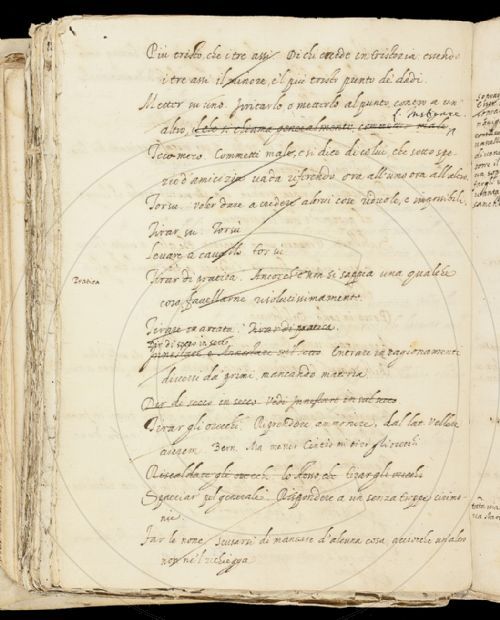 Più tristo, che i tre assi. Di chi eccede in tristizia essendo
i tre assi il minore, e'l più tristo punto di dadi.
Metter su uno. Irritarlo o metterlo al punto contro a un'
altro, che si chiama generalmente commetter male
Teco meco. Commetti male, e si dice di colui, che sotto spe-
zie d'amicizia vada riferendo ora all'uno ora all'altro.
Tor su. voler dare a credere altrui cose ridicole, e impossibili.
Tirar su. Tor sù
Levare a cavallo. tor su
Pratica
Tirar di pratica. Ancorche non si sappia una qualche
cosa favellarne resolutissimamente.
Tirare in arcata. Tirar di pratica.
Far di secco in secco
Innestare in sul secco Entrare in ragionamenti
diversi da' primi, mancando materia
Dar di secco in secco. Vedi Innestare in sul secco
Tirar gli orecchi. Riprendere ammonire, dal lat. vellere
aurem. Bern. Ma Monsi Cintio mi tirò gli orecchi
Riscaldare gli orecchi. lo stesso che tirar gli orecchi
Spacciar pel generale. Rispondere a un senza troppe cirimo-
nie.
Far le none. Scusarsi di mancare d'alcuna cosa, acciocche un'altro
non ne'l richiegga